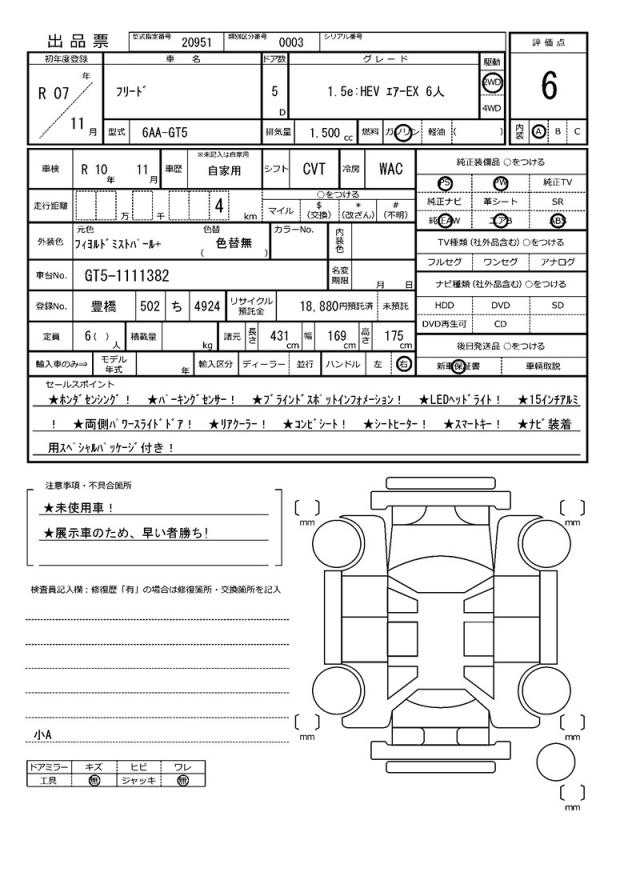 出品票
型式指定番号 20951 類別区分番号 0003 シリアル番号
初年度登録 車名 ドア数 グレード 駆動 評価点
R 07 年 11 月
ﾌﾘｰﾄﾞ
5 D
1.5e:HEV ｴｱｰEX 6人
2WD
4WD
6
型式 6AA-GT5 排気量 1.500 cc 燃料 ガソリン 軽油 ( ) 内装 A B C
車検 R 10 年 11 月 車歴 ※未記入は自家用 自家用 シフト CVT 冷房 WAC
純正装備品 ○をつける
PS PW 純正TV
純正ナビ 革シート SR
純正AW エアB ABS
走行距離 万 千 4 km
○をつける
マイル $(交換) *(改ざん) #(不明)
TV種類 (社外品含む) ○をつける
フルセグ ワンセグ アナログ
外装色 元色 ﾌｨﾖﾙﾄﾞﾐｽﾄﾊﾟｰﾙ+ 色替 ( 色替無 ) カラーNo. 内装色
車台No. GT5-1111382 名変期限 月 日
ナビ種類 (社外品含む) ○をつける
HDD DVD SD
DVD再生可 CD
登録No. 豊橋 502 ち 4924 リサイクル預託金 18,880円預託済 未預託
定員 6 ( ) 人 積載量 kg 諸元 長さ 431 cm 幅 169 cm 高さ 175 cm
後日発送品 ○をつける
新車保証書 車輌取説
輸入車のみ⇒ モデル年式 年 輸入区分 ディーラー 並行 ハンドル 左 右
セールスポイント
★ﾎﾝﾀﾞｾﾝｼﾝｸﾞ! ★ﾊﾟｰｷﾝｸﾞｾﾝｻｰ! ★ﾌﾞﾗｲﾝﾄﾞｽﾎﾟｯﾄｲﾝﾌｫﾒｰｼｮﾝ! ★LEDﾍｯﾄﾞﾗｲﾄ! ★15ｲﾝﾁｱﾙﾐ
! ★両側ﾊﾟﾜｰｽﾗｲﾄﾞﾄﾞｱ! ★ﾘｱｸｰﾗｰ! ★ｺﾝﾋﾞｼｰﾄ! ★ｼｰﾄﾋｰﾀｰ! ★ｽﾏｰﾄｷｰ! ★ﾅﾋﾞ装着
用ｽﾍﾟｼｬﾙﾊﾟｯｹｰｼﾞ付き!
注意事項・不具合箇所
★未使用車!
★展示車のため、早い者勝ち!
検査員記入欄:修復歴「有」の場合は修復箇所・交換箇所を記入
小A
ドアミラー キズ ヒビ ワレ
工具 無 ジャッキ 無
[ ] mm
[ ] mm
[ ] mm
[ ] mm
[ ] mm